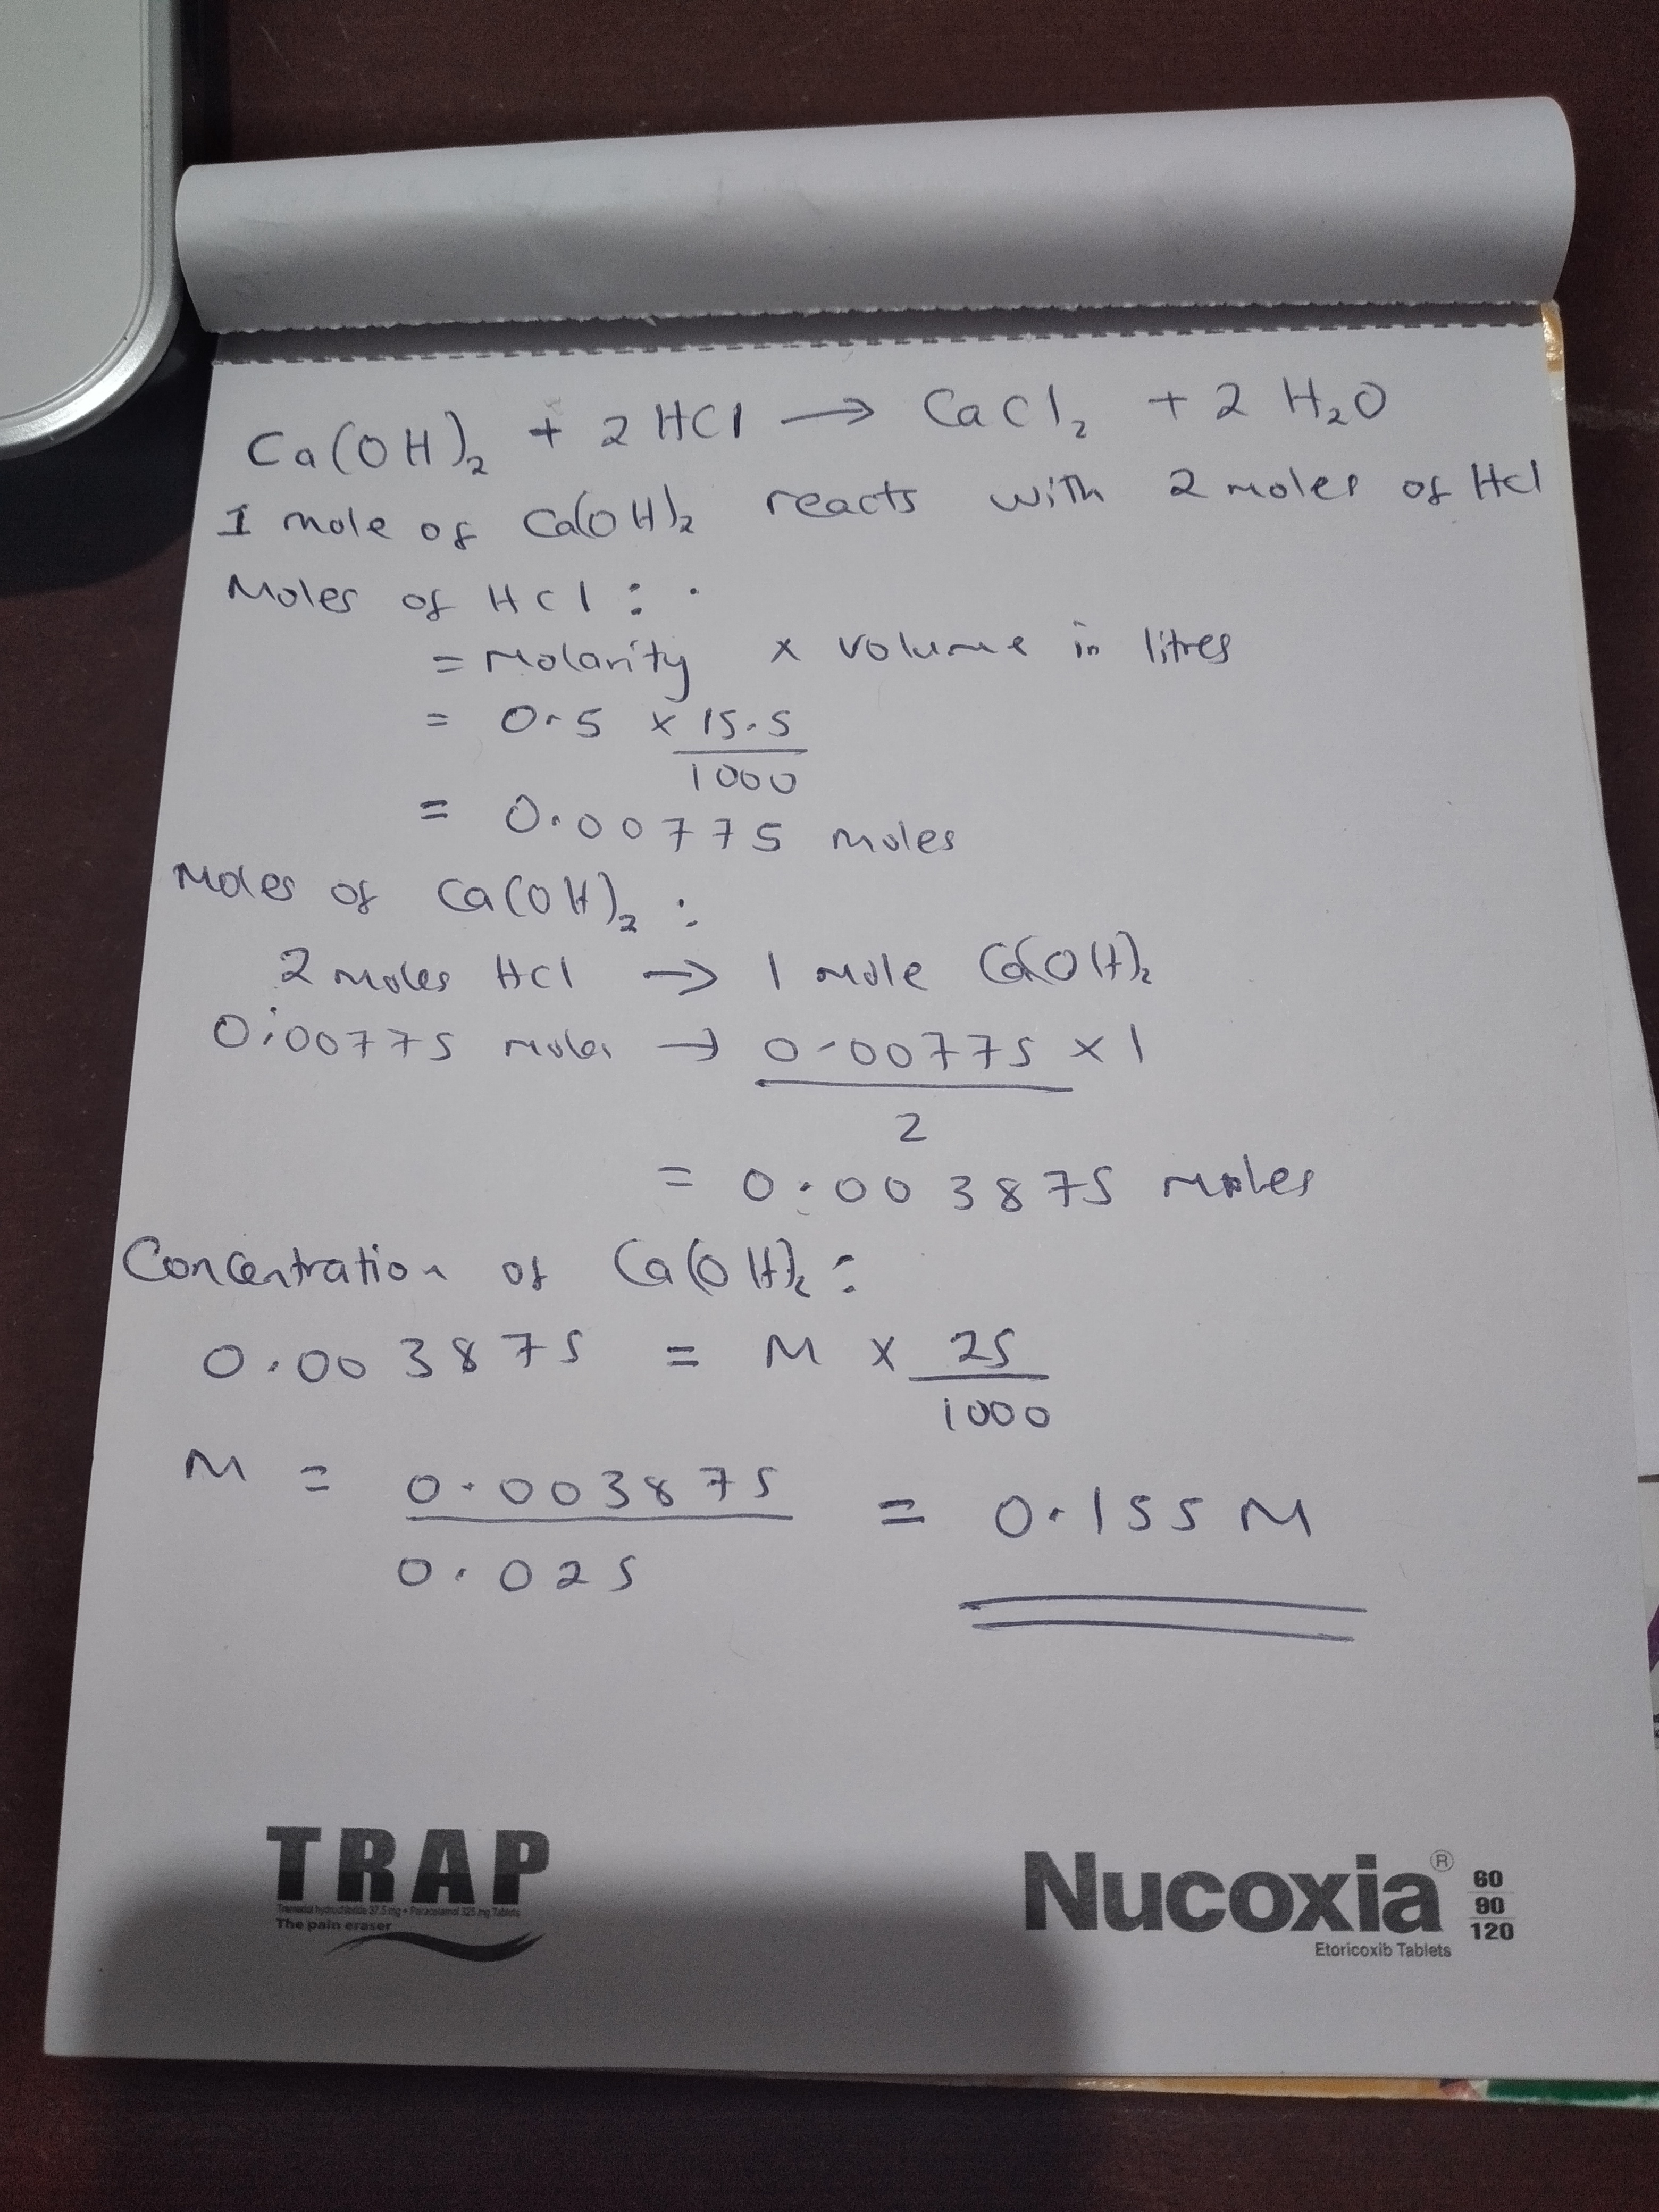 Ca(OH)₂ + 2 HCl → CaCl₂ + 2 H₂O
1 mole of Ca(OH)₂ reacts with 2 moles of HCl
Moles of HCl :
= Molarity x volume in litres
= 0.5 x 15.5
1000
= 0.00775 moles
Moles of Ca(OH)₂ :
2 moles HCl → 1 mole Ca(OH)₂
0.00775 moles → 0.00775 x 1
2
= 0.003875 moles
Concentration of Ca(OH)₂ :
0.003875 = M x 25
1000
M = 0.003875 = 0.155 M
0.025
TRAP
Tramadol hydrochloride 37.5 mg + Paracetamol 325 mg Tablets
The pain eraser
Nucoxia®
60
90
120
Etoricoxib Tablets